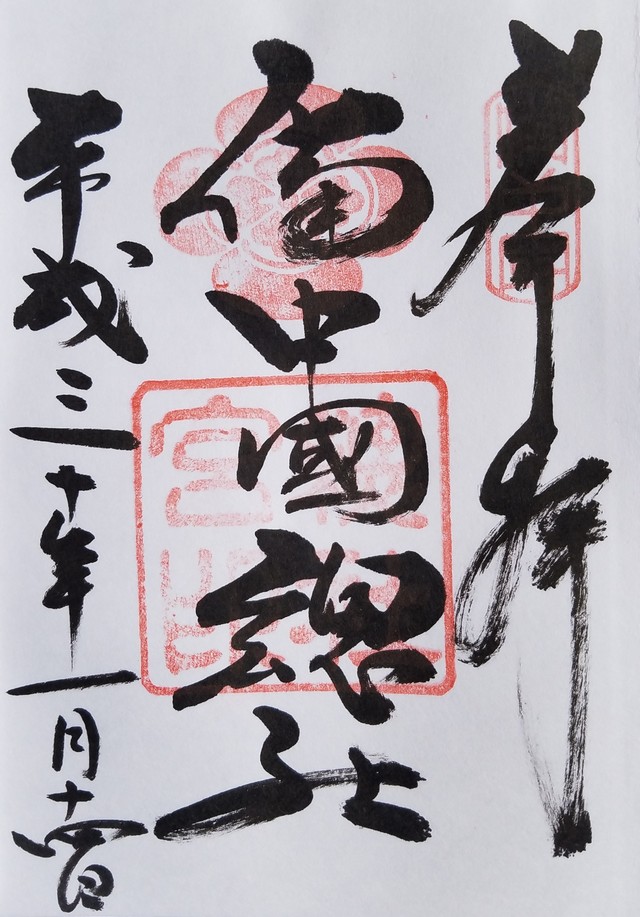 奉拝
備中國總社
平成三十年一月十四日